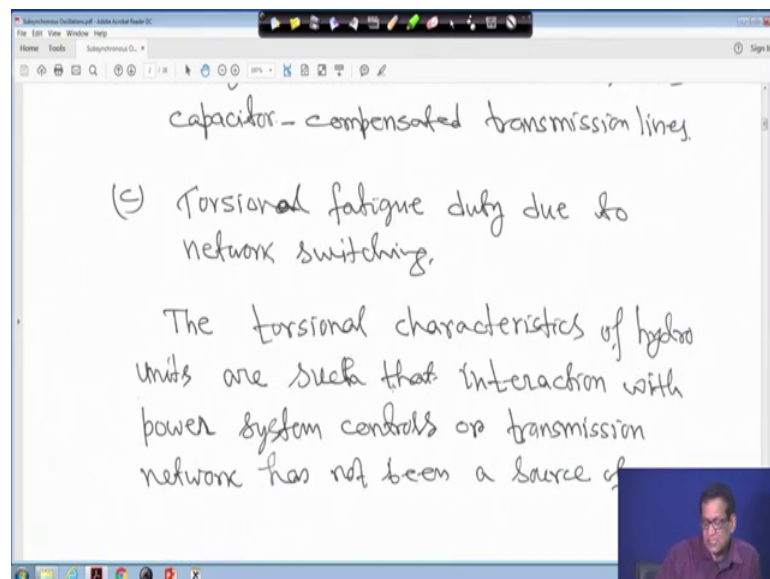 Subsynchronous Oscillations.pdf - Adobe Acrobat Reader DC
File Edit View Window Help
Home Tools Subsynchronous O... ×
Sign I
capacitor - compensated transmission lines.
(c) Torsional fatigue duty due to
network switching.
The torsional characteristics of hydro
units are such that interaction with
power system controls or transmission
network has not been a source of